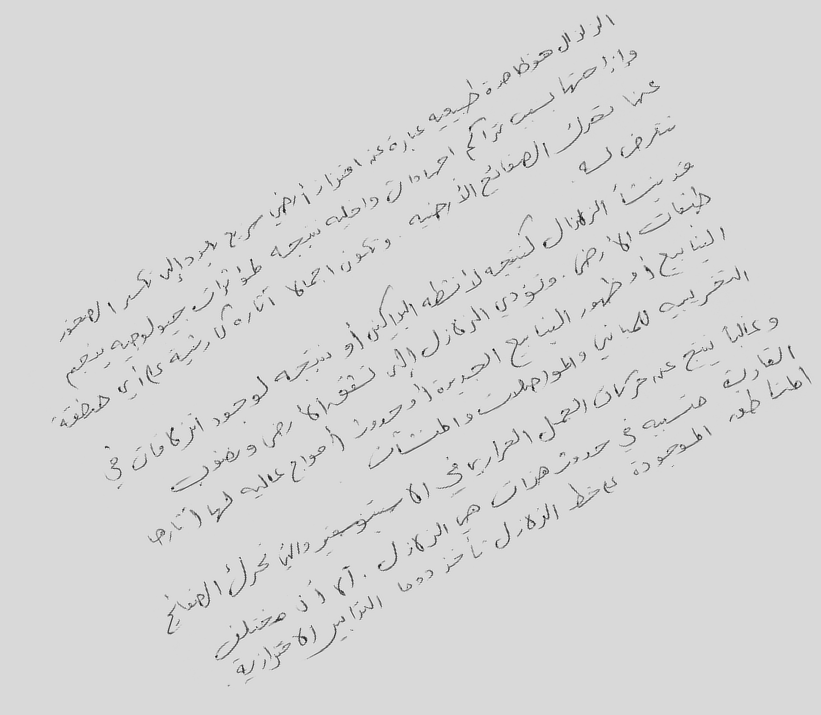 الزلزال هو ظاهرة طبيعيه عبارة عن اهتزاز أرضي سريع يعود إلى تكسر الصخور
وإزاحتها بسبب تراكم اجهادات داخليه نتيجه لمؤثرات جيولوجيه ينجم
عنها تحرك الصفائح الأرضيه . وتكون اجمالا آثاره كارثية على أي منطقة
تتعرض له
قد ينشأ الزلازال كنتيجه لأنشطه البراكين أو نتيجه لوجود انزلاقات في
طبقات الأرض . وتؤدي الزلازل إلى تشقق الأرض ونضوب
الينابيع أو ظهور الينابيع الجديدة أو حدوث أمواج عاليه لها آثارها
التخريبيه للمباني والمواصلات والمنشآت
وغالباً ينتج عن حركات الحمل الحراري في الاستينوسفير والتي تحرك الصفائح
القارية متسببه في حدوث هزات هي الزلازل . الا أن مختلف
المناطق الموجودة على خط الزلازل تأخذ دوما التدابير الاحترازية .